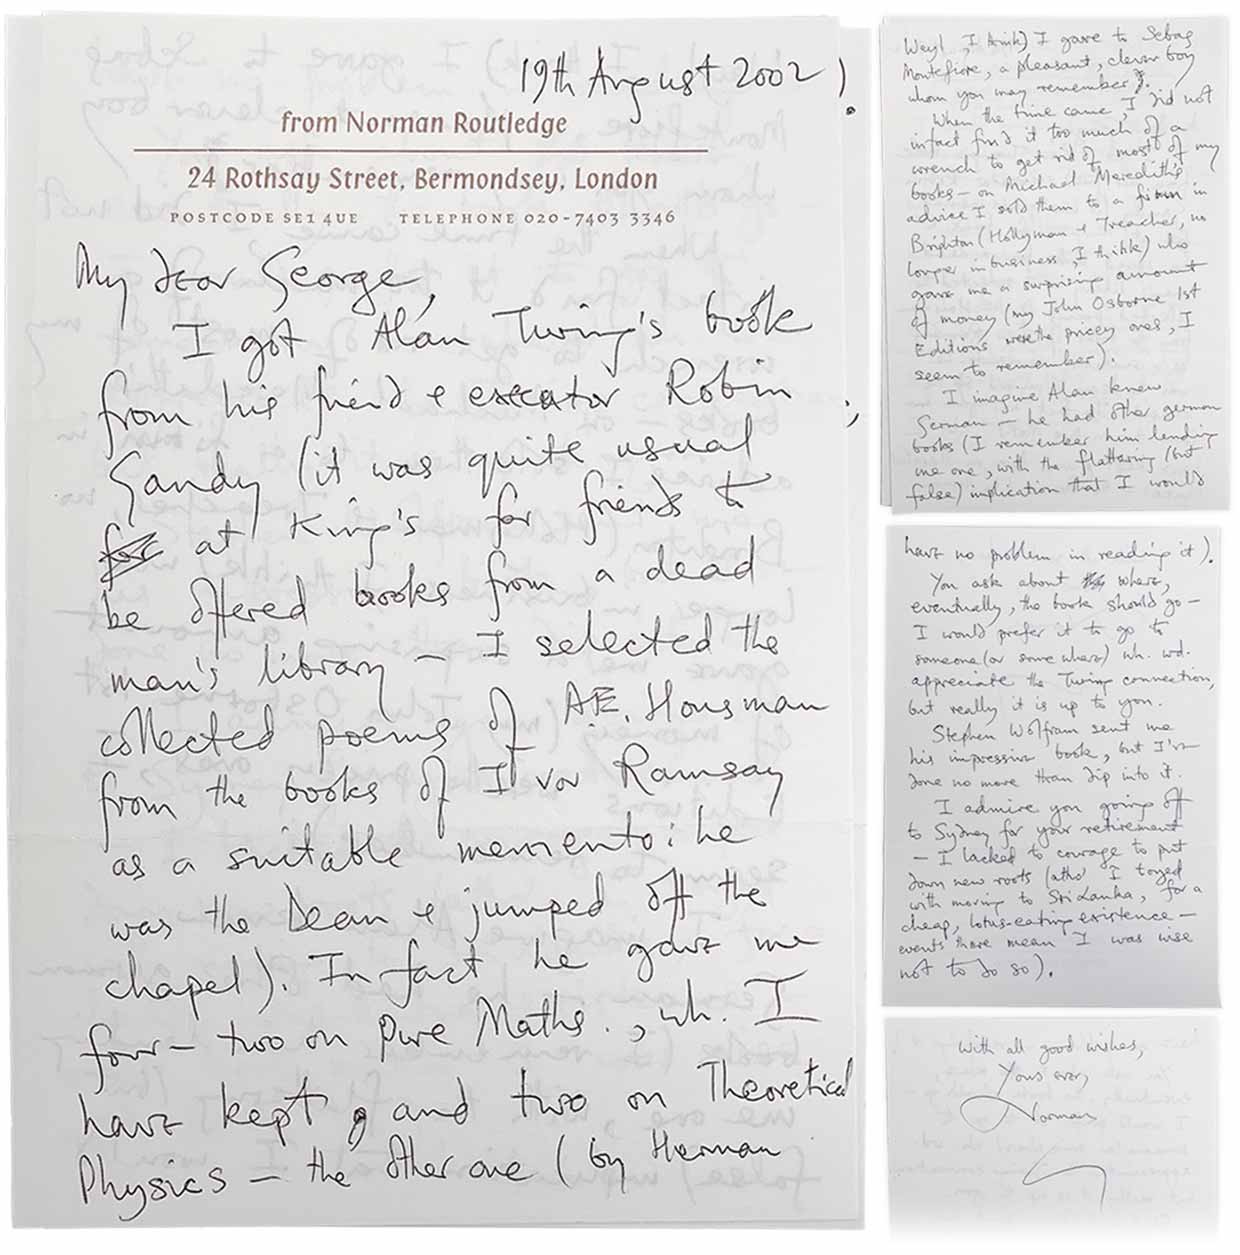 19th August 2002
from Norman Routledge
24 Rothsay Street, Bermondsey, London
POSTCODE SE1 4UE TELEPHONE 020-7403 3346
My dear George,
I got Alan Turing's book
from his friend & executor Robin
Gandy (it was quite usual
at King's for friends to
be offered books from a dead
man's library — I selected the
collected poems of A.E. Housman
from the books of Ivor Ramsay
as a suitable memento: he
was the Dean & jumped off the
chapel). In fact he gave me
four — two on Pure Maths., wh. I
have kept, and two on Theoretical
Physics — the other one (by Herman
Weyl, I think) I gave to Sebag
Montefiore, a pleasant, clever boy
whom you may remember).
When the time came, I did not
in fact find it too much of a
wrench to get rid of most of my
books — on Michael Meredith's
advice I sold them to a firm in
Brighton (Hollyman & Treacher, no
longer in business, I think) who
gave me a surprising amount
of money (my John Osborne 1st
Editions were the pricey ones, I
seem to remember).
I imagine Alan knew
German — he had other german
books (I remember him lending
me one, with the flattering (but
false) implication that I would
have no problem in reading it).
You ask about where,
eventually, the book should go —
I would prefer it to go to
someone (or some where) wh. wd.
appreciate the Turing connection,
but really it is up to you.
Stephen Wolfram sent me
his impressive book, but I've
done no more than dip into it.
I admire you going off
to Sydney for your retirement
— I lacked to courage to put
down new roots (altho' I toyed
with moving to Sri Lanka, for a
cheap, lotus-eating existence —
events there mean I was wise
not to do so).
With all good wishes,
Yours ever,
Norman